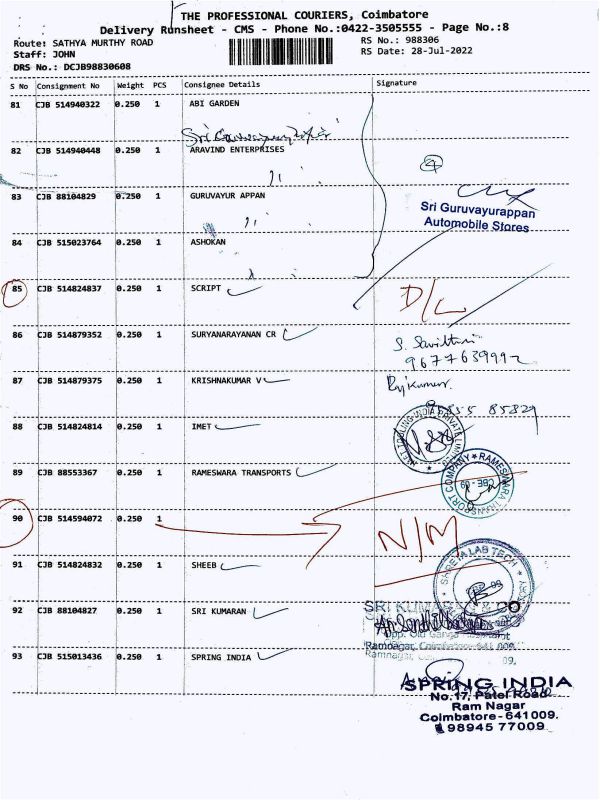 THE PROFESSIONAL COURIERS, Coimbatore
Delivery Runsheet - CMS - Phone No.:0422-3505555 - Page No.:8
Route: SATHYA MURTHY ROAD
RS No.: 988306
Staff: JOHN
RS Date: 28-Jul-2022
DRS No.: DCJB98830608
S No Consignment No Weight PCS Consignee Details Signature
81 CJB 514940322 0.250 1 ABI GARDEN
82 CJB 514940448 0.250 1 ARAVIND ENTERPRISES
4
83 CJB 88104829 0.250 1 GURUVAYUR APPAN
Sri Guruvayurappan
Automobile Stores
84 CJB 515023764 0.250 1 ASHOKAN
85 CJB 514824837 0.250 1 SCRIPT
D/L
86 CJB 514879352 0.250 1 SURYANARAYANAN CR
S. Savithri
9677639992
87 CJB 514879375 0.250 1 KRISHNAKUMAR V
Rajkumar
85829
88 CJB 514824814 0.250 1 IMET
89 CJB 88553367 0.250 1 RAMESWARA TRANSPORTS
RAMESWARA TRANSPORT COMPANY
CBE-09
90 CJB 514594072 0.250 1
N/M
91 CJB 514824832 0.250 1 SHEEB
SHREEJA LAB TECH
92 CJB 88104827 0.250 1 SRI KUMARAN
SRI KUMARAN & CO
Opp. Old
Ramnagar, Coimbatore-641 009.
93 CJB 515013436 0.250 1 SPRING INDIA
SPRING INDIA
No.17, Patel Road
Ram Nagar
Coimbatore-641009.
98945 77009